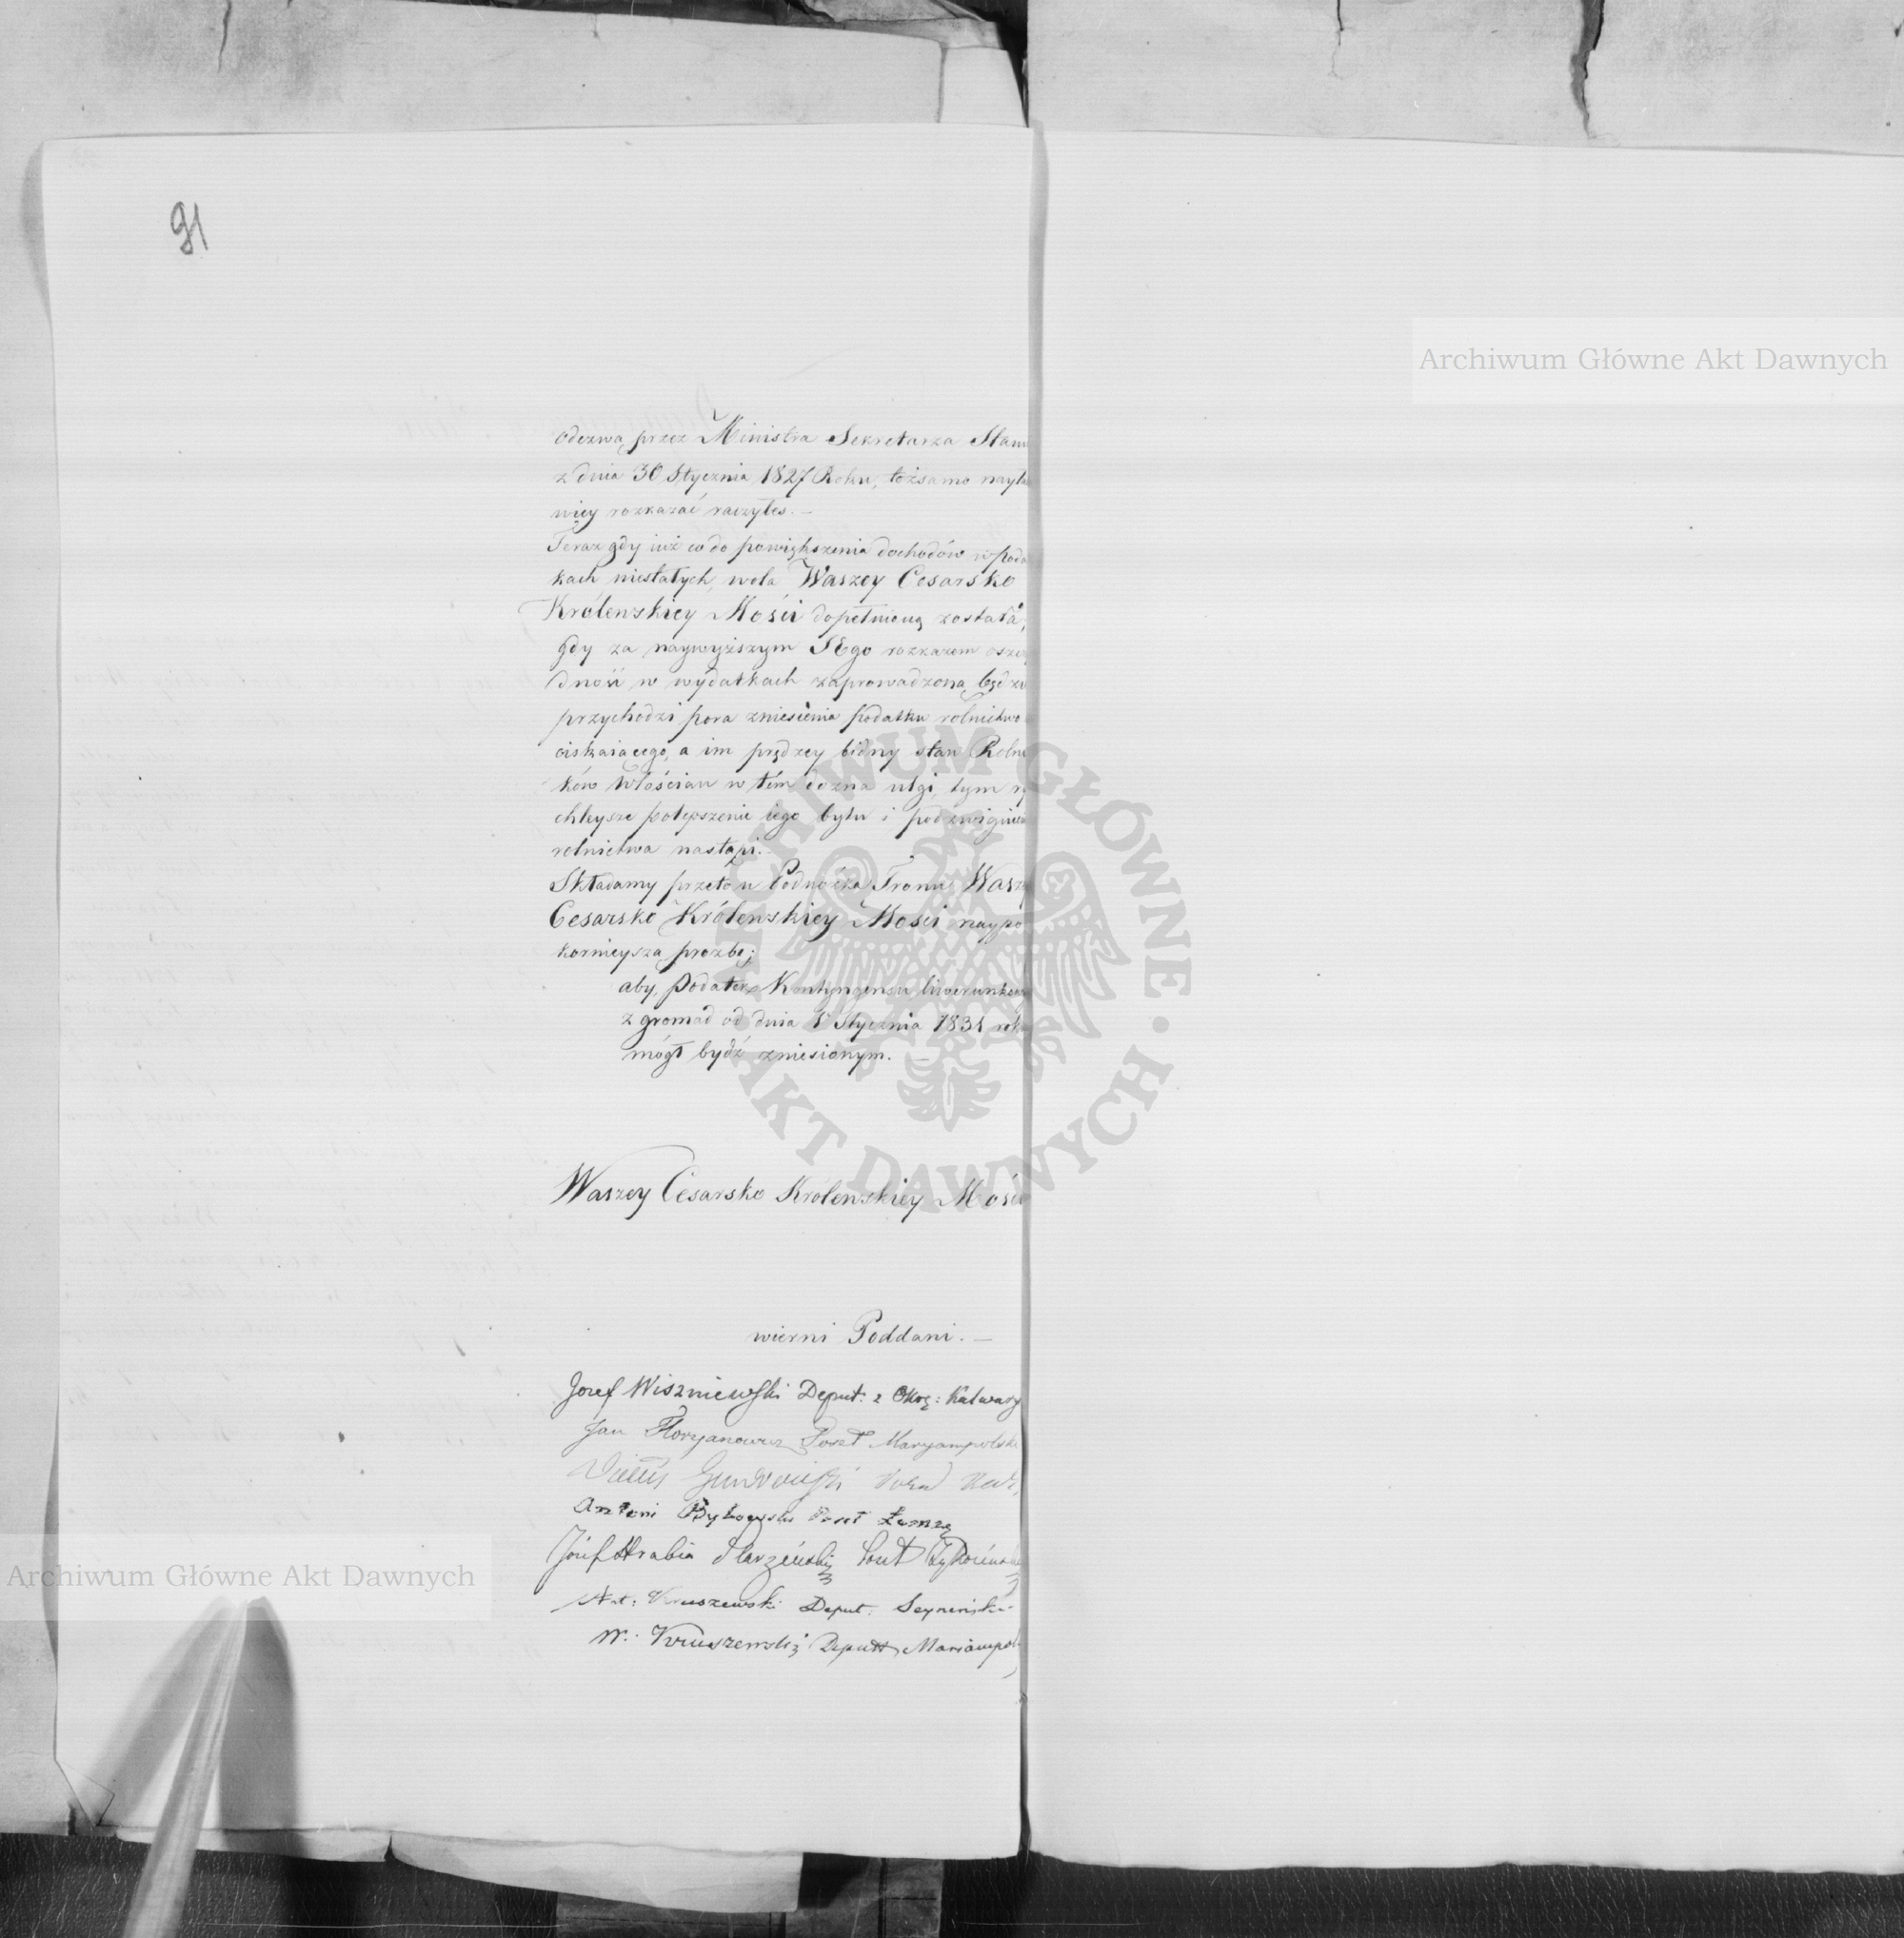 91
Archiwum Główne Akt Dawnych
odezwą przez Ministra Sekretarza Stanu
z dnia 30 Stycznia 1827 Roku, tożsamo nayła
wiey rozkazać raczyłes. —
Teraz gdy iuż co do powiększenia dochodów w poda
kach niestałych, wola Waszey Cesarsko
Królewskiey Mości dopełnioną została,
gdy za naywyższym JEgo rozkazem oszczę
dność w wydatkach zaprowadzoną będzie
przychodzi pora zniesienia podatku rolnictwo
ciskaiącego, a im prędzey bidny stan Rolni
ków Włościan w tém dozna ulgi, tym ry
chleysze polepszenie iego bytu i podzwignien
rolnictwa nastąpi.
Składamy przeto u Podnóżka Tronu Waszey
Cesarsko Królewskiey Mości naypo
kornieyszą prozbę;
aby, Podatek Kontyngensu liwerunkowy
z gromad od dnia 1 Stycznia 1831 roku
mógł bydź zniesionym. —
ARCHIWUM GŁÓWNE • AKT DAWNYCH •
Waszey Cesarsko Krolewskiey Mości
wierni Poddani. —
Jozef Wiszniewski Deput: z Okrę: Kalwary
Jan Floryanowicz Poseł Maryampolski
Antoni Bykowski Poseł Łomzy
Józef Hrabia Starzeński Poseł Tykocińsk
Ant: Kruszewski Deput. Seyneński
W. Kruszewski Deput Mariampol
Archiwum Główne Akt Dawnych